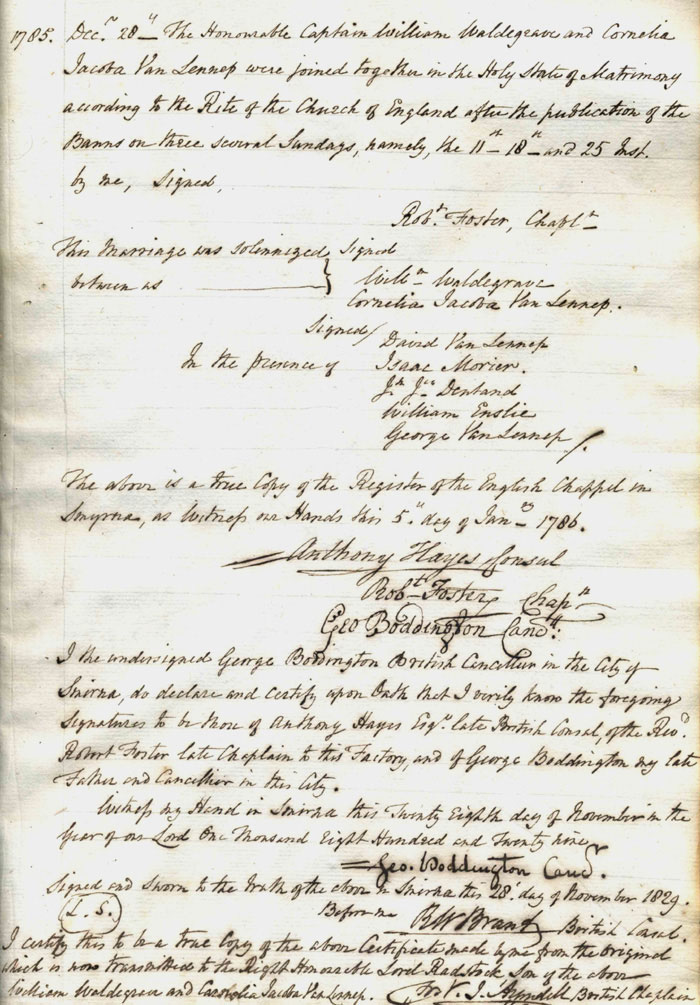 1785. Dec.r 28th The Honourable Captain William Waldegrave and Cornelia
Jacoba Van Lennep were joined together in the Holy State of Matrimony
according to the Rite of the Church of England after the publication of the
Banns on three several Sundays, namely, the 11th 18th and 25 Inst.
by me, Signed,
Robt. Foster, Chapln
This Marriage was solemnized
between us
Signed
Willm Waldegrave
Cornelia Jacoba Van Lennep.
Signed/
In the presence of
David Van Lennep
Isaac Morier.
Dentand
William Enslie
George Van Lennep /.
The above is a true Copy of the Register of the English Chappel in
Smyrna, as Witness our Hands this 5th day of Jan.ry 1786.
Anthony Hayes Consul
Robt Foster Chapn
Geo Boddington Cancr:
I the undersigned George Boddington British Cancellier in the City of
Smirna, do declare and certify upon Oath that I verily know the foregoing
signatures to be those of Anthony Hayes Esqr. late British Consul, of the Revd.
Robert Foster late Chaplain to this Factory, and of George Boddington my late
Father and Cancellier in this City.
Witness my Hand in Smirna this Twenty Eighth day of November in the
Year of our Lord One Thousand Eight Hundred and Twenty nine
Geo. Boddington Cancr.
Signed and Sworn to the truth of the above in Smirna this 28. day of November 1829.
(L. S.)
Before me R W Brant British Consul.
I certify this to be a true Copy of the above Certificate made by me from the original
which is now transmitted to the Right Honorable Lord Radstock Son of the above
William Waldegrave and Cornelia Jacoba Van Lennep. V. J. Arundell British Chaplain